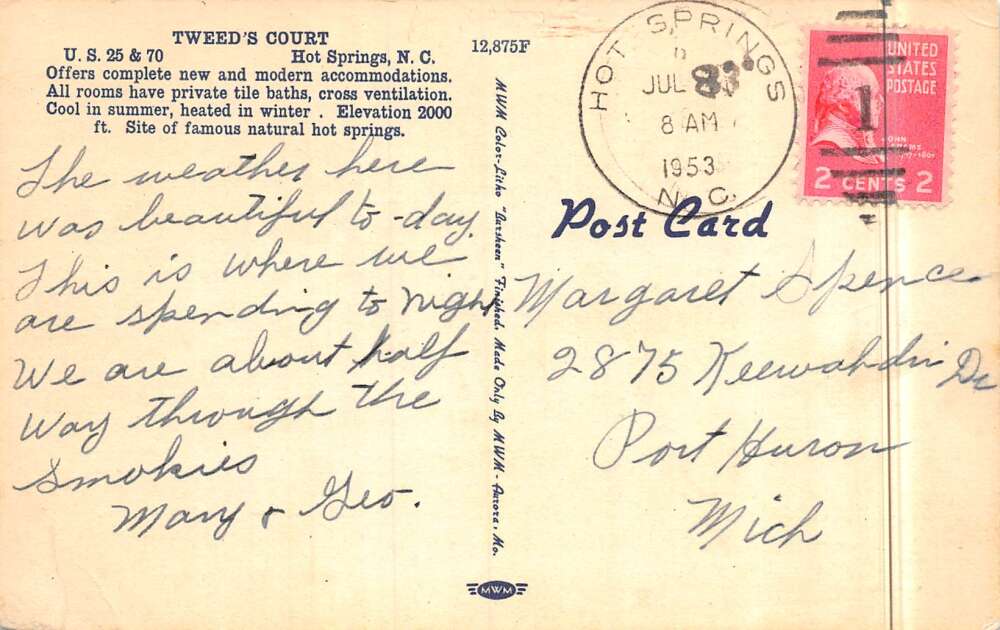 TWEED'S COURT
U. S. 25 & 70 Hot Springs, N. C.
Offers complete new and modern accommodations.
All rooms have private tile baths, cross ventilation.
Cool in summer, heated in winter . Elevation 2000
ft. Site of famous natural hot springs.
The weather here
was beautiful to-day.
This is where we
are spending to night
We are about half
way through the
Smokies
Mary & Geo.
12,875F
MWM Color-Litho "Aursheen" Finished. Made Only By MWM - Aurora, Mo.
MWM
HOT SPRINGS
JUL
8 AM
1953
N. C.
UNITED
STATES
POSTAGE
1
JOHN
ADAMS
2 CENTS 2
Post Card
Margaret Spence
2875 Keewahdin Dr
Port Huron
Mich